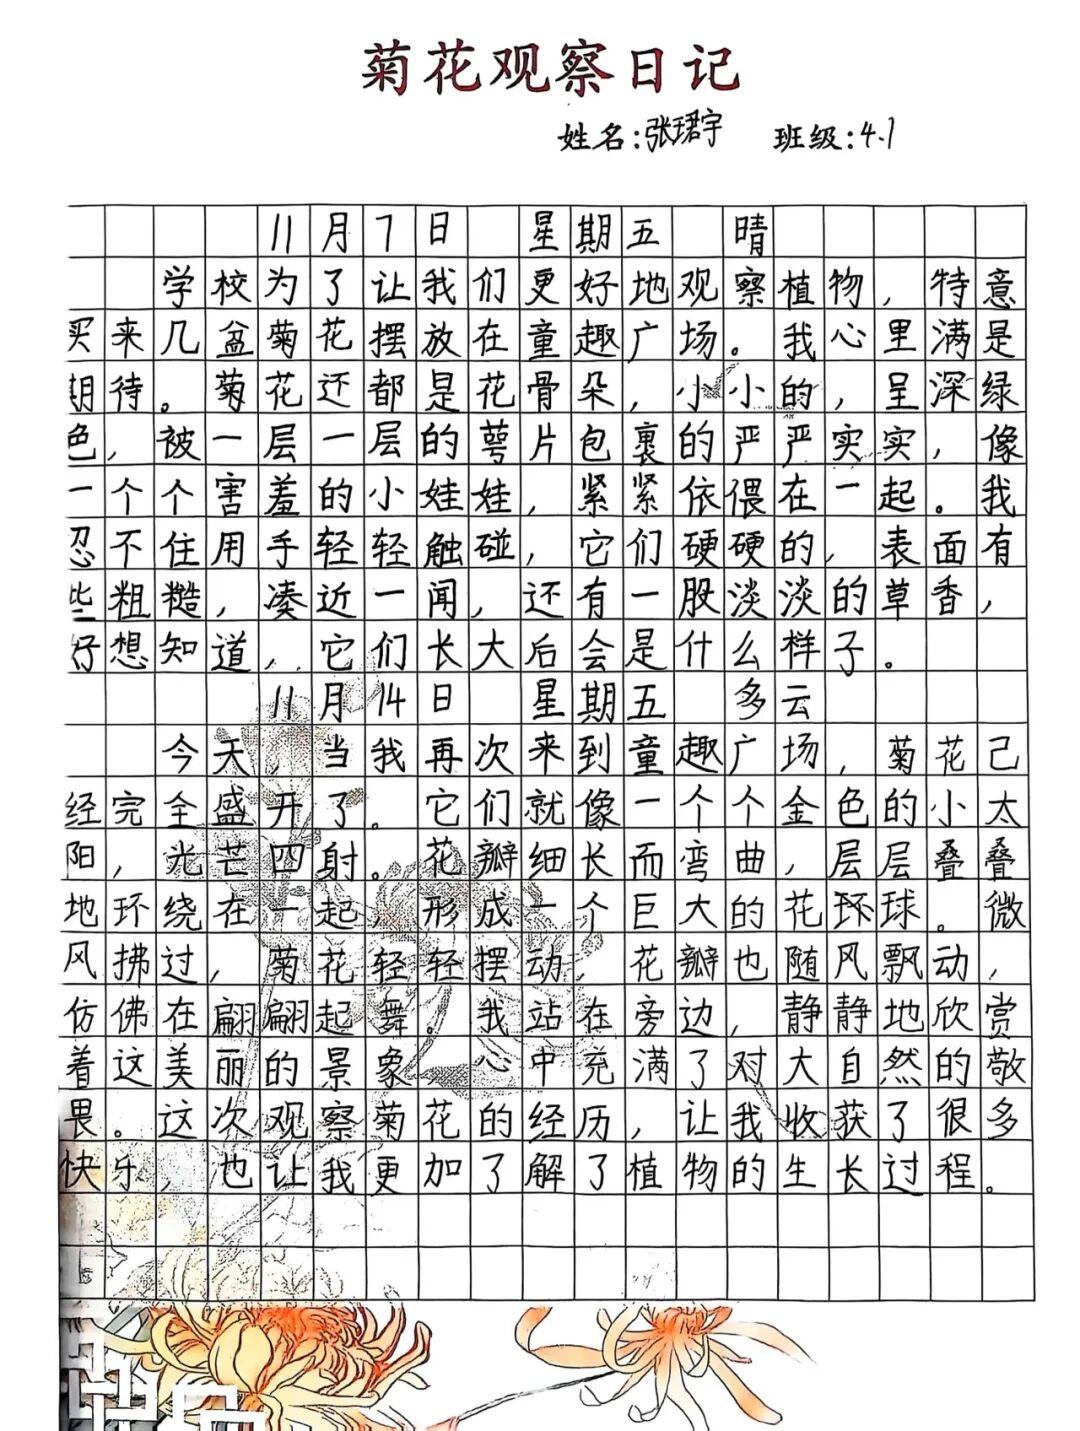 菊花观察日记
姓名:张珺宇 班级:4.1
11月7日 星期五 晴
学校为了让我们更好地观察植物,特意
买来几盆菊花摆放在童趣广场。我心里满是
期待。菊花还都是花骨朵,小小的,呈深绿
色,被一层一层的萼片包裹的严严实实,像
一个个害羞的小娃娃,紧紧依偎在一起。我
忍不住用手轻轻触碰,它们硬硬的,表面有
些粗糙,凑近一闻,还有一股淡淡的草香,
好想知道,它们长大后会是什么样子。
11月14日 星期五 多云
今天,当我再次来到童趣广场,菊花己
经完全盛开了。它们就像一个个金色的小太
阳,光芒四射。花瓣细长而弯曲,层层叠叠
地环绕在一起,形成一个巨大的花环球。微
风拂过,菊花轻轻摆动,花瓣也随风飘动,
仿佛在翩翩起舞。我站在旁边,静静地欣赏
着这美丽的景象 心中充满了对大自然的敬
畏。这次观察菊花的经历,让我收获了很多
快乐,也让我更加了解了植物的生长过程。